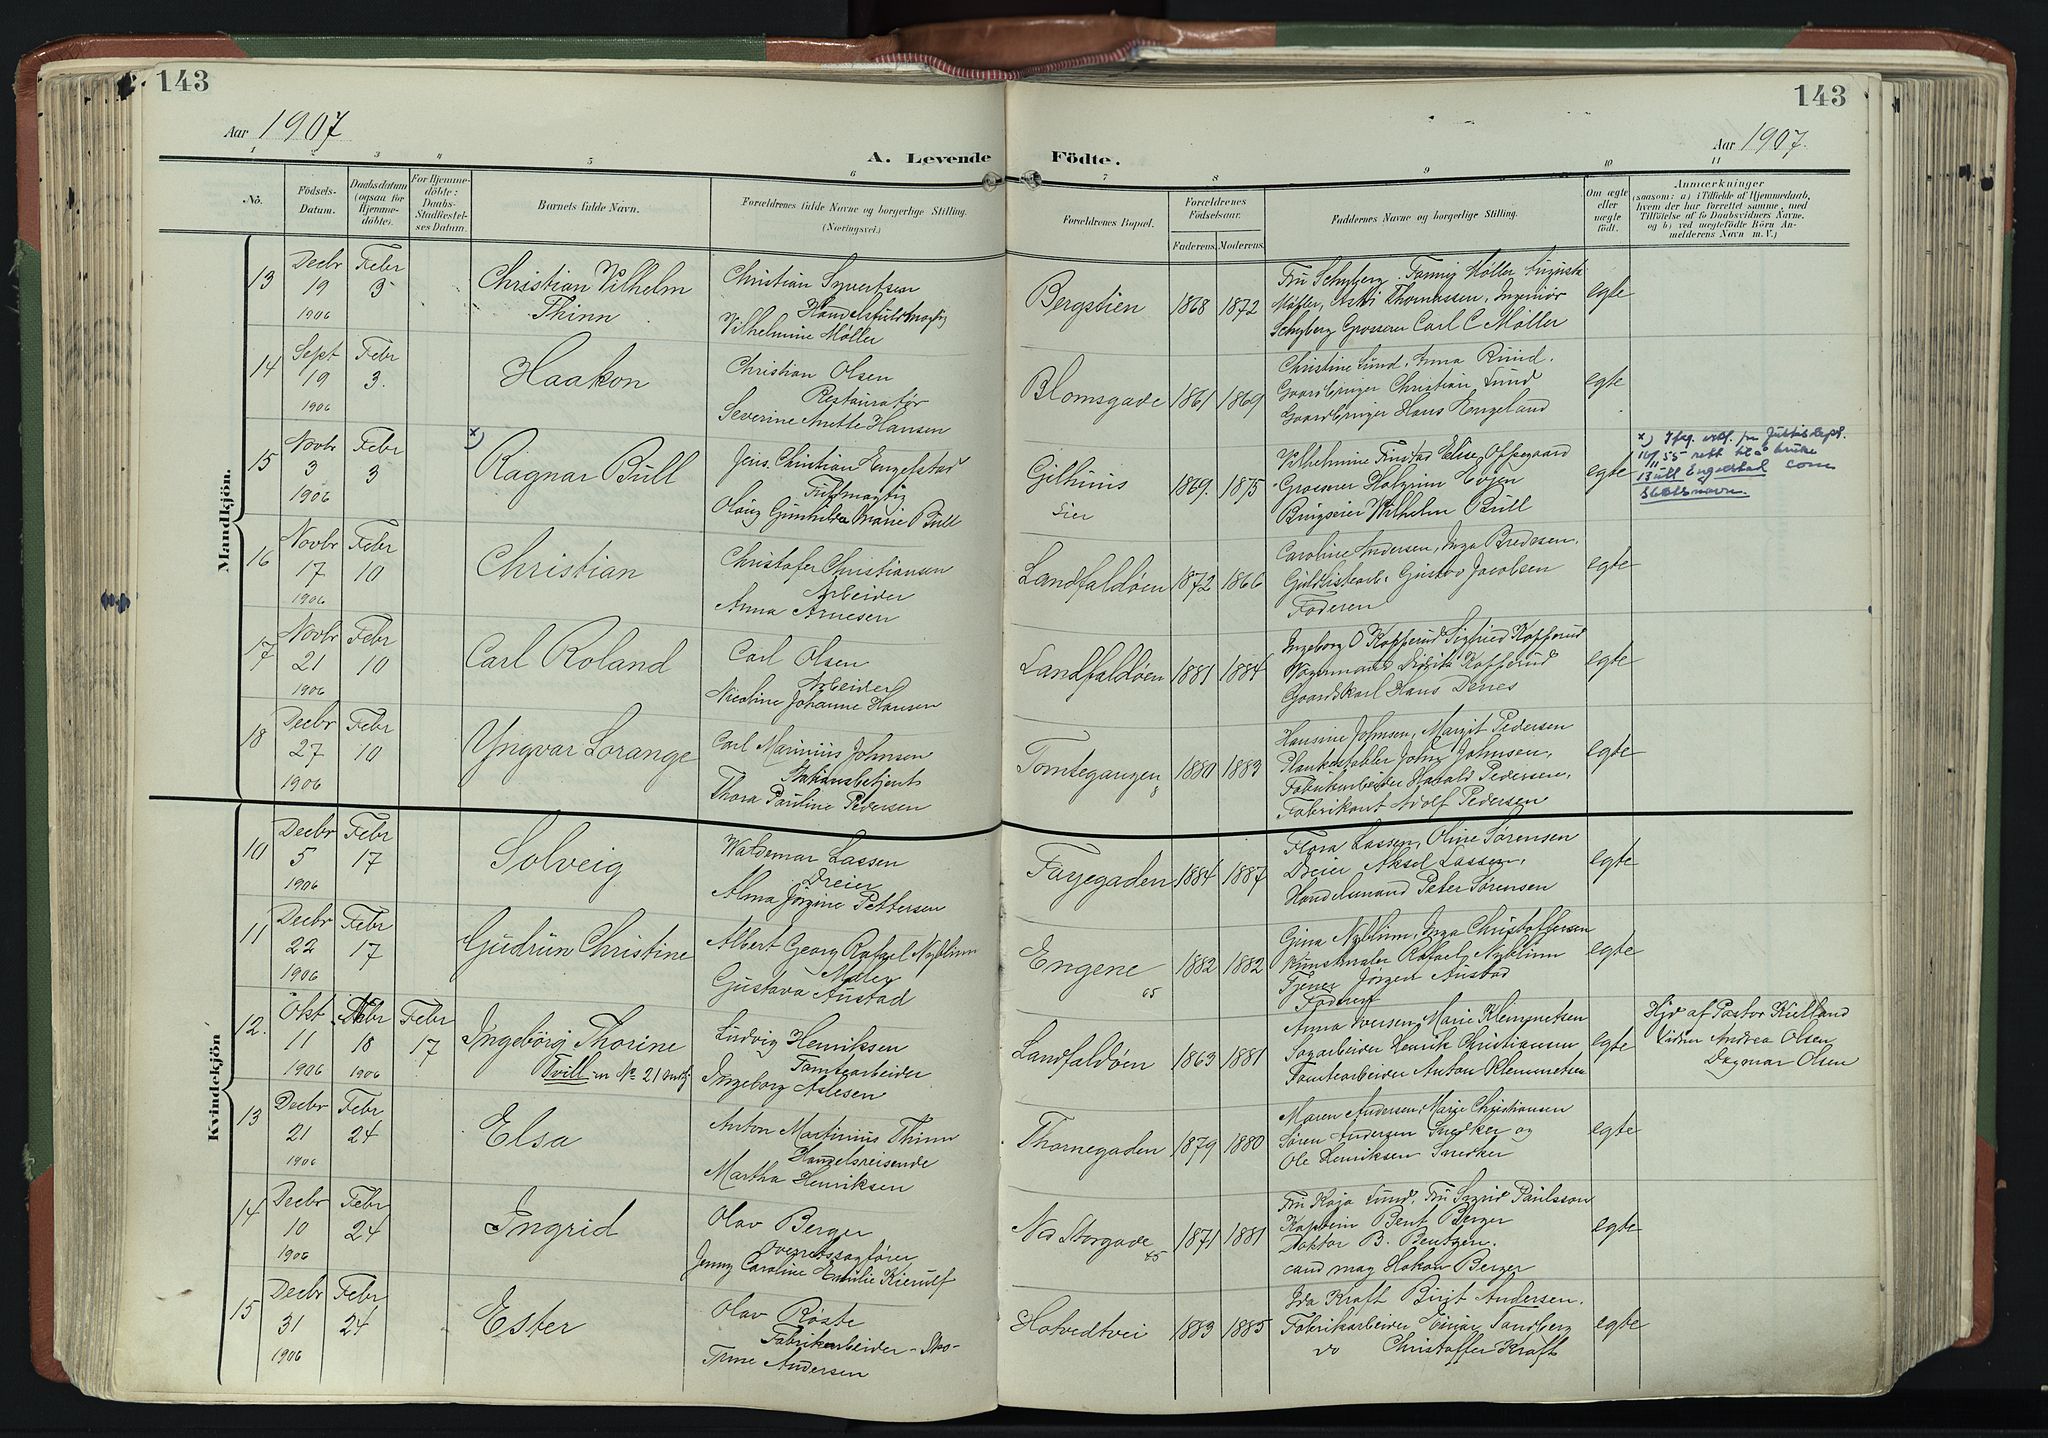 143
143
Aar 1907
A. Levende Födte.
Aar 1907.
1 2 3 4 5 6 7 8 9 10 11
No.
Födsels-Datum.
Daabsdatum (ogsaa for Hjemme-döbte).
For Hjemme-döbte: Daabs-Stadfæstel-ses Datum.
Barnets fulde Navn.
Forældrenes fulde Navne og borgerlige Stilling.
(Næringsvei.)
Forældrenes Bopæl.
Forældrenes Födselsaar.
Faderens. Moderens.
Faddernes Navne og borgerlige Stilling.
Om ægte eller uægte födt.
Anmærkninger
(saasom: a) i Tilfælde af Hjemmedaab,
hvem der har forrettet samme, med
Tilföielse af to Daabsvidners Navne.
og b) ved uægtefödte Börn An-
melderens Navn m. V.)
Mandkjön.
13 Decbr 19 1906 Febr 3
Christian Vilhelm
Thinn
Christian Syvertsen
Handelsfuldmægtig
Vilhelmine Møller
Bergstien 1868 1872
Fru Schyberg. Fanny Møller Auguste
Møller, Thomassen, Ingeniør
Schyberg Grosserer Carl C Møller
egte
14 Sept 19 1906 Febr 3.
Haakon
Christian Olsen
Restauratør
Severine Anette Hansen
Blomsgade 1861 1869
Christine Lund. Anna Rund.
Gaardbruger Christian Lund
Gaardbruger Hans Kongeland
egte
15 Novbr 3 1906 Febr 3
x)
Ragnar Bull
Jens Christian Engelstad
Fuldmægtig
Olaug Gunhilda Marie Bull
Gilhuus
eier
1869. 1875
Vilhelmine Elise Oppegaard
Grosserer
Wilhelm Bull
egte
x) fra Justisdept.
16/11 55 rett til å bruke
Bull Engelstad som
slektsnavn.
16 Novbr 17 1906 Febr 10
Christian
Christofer Christiansen
Arbeider
Anna Arnesen
Landfaldøen 1872 1866
Caroline Andersen, Inga Bredesen,
Guldlistearb. Gustav Jacobsen
Faderen
egte
17 Novbr 21 1906 Febr 10
Carl Roland
Carl Olsen
Arbeider
Nicoline Johanne Hansen
Landfaldøen 1881 1884
Ingeborg O Kopperud Sigfried Kopperud
Vognmand Kopperud
Gaardskarl Hans
egte
18 Decbr 27 1906 Febr 10
Yngvar Lorange
Carl Marinius Johnsen
Stationsbetjent
Thora Pauline Pedersen
Tomtegangen 8 1880 1883
Hansine Johnsen, Margit Pedersen
Plankestabler John Johnsen,
Fabrikarbeider Harald Pedersen,
Fabrikant Adolf Pedersen
egte
Kvindekjön
10 Decbr 5 1906 Febr 17
Solveig
Waldemar Lassen
Dreier
Alma Jørgine Pettersen
Fayegaden 1884 1887
Flora Lassen, Oline Sørensen
Dreier Aksel Lassen,
Handelsmand Peter Sørensen
egte
11 Decbr 22 1906 Febr 17
Gudrun Christine
Albert Georg Rafael Nyblinn
Maler
Gustava Austad
Engene 65 1882 1882
Gina Nyblinn, Inga Christoffersen
Kunstmaler Rafael Nyblinn
Tjener Jørgen Austad
Faderen
egte
12. Okt 11 1906 18 1906 Febr 17
Ingebørg Thorine
Tvill m No 21
Ludvig Henriksen
Tomtearbeider
Ingeborg Aslesen
Landfaldøen 1863 1881
Anna Iversen, Marie Klemmetsen
Sagarbeider Henrik Christiansen
Tomtearbeider Anton Klemmetsen
egte
Hjd af Pastor Kielland
Vidner Andrea Olsen
Dagmar Olsen
13 Decbr 21 1906 Febr 24
Elsa
Anton Martinius Thinn
Handelsreisende
Martha Henriksen
Thornegaden 1879 1880
Maren Andersen, Marie Christiansen
Søren Andersen Snedker og
Ole Henriksen Snedker
egte
14 Decbr 10 1906 Febr 24
Ingrid
Olav Berger
Overretssagfører
Jenny Caroline Emilie Kierulf
Nd Storgade 45 1871 1881
Fru Kaja Lund, Fru Sigrid Paulsson
Kaptein Bent Berger
Doktor B. Bentzen.
cand mag Hakon Berger
egte
15 Decbr 31 1906 Febr 24
Ester
Olav Røste
Fabrikarbeider - Sko-
Trine Andersen
Hotvedtvei 1883 1885
Ida Kraft Birgit Andersen.
Fabrikarbeider Einar Sandberg
do Christoffer Kraft
egte